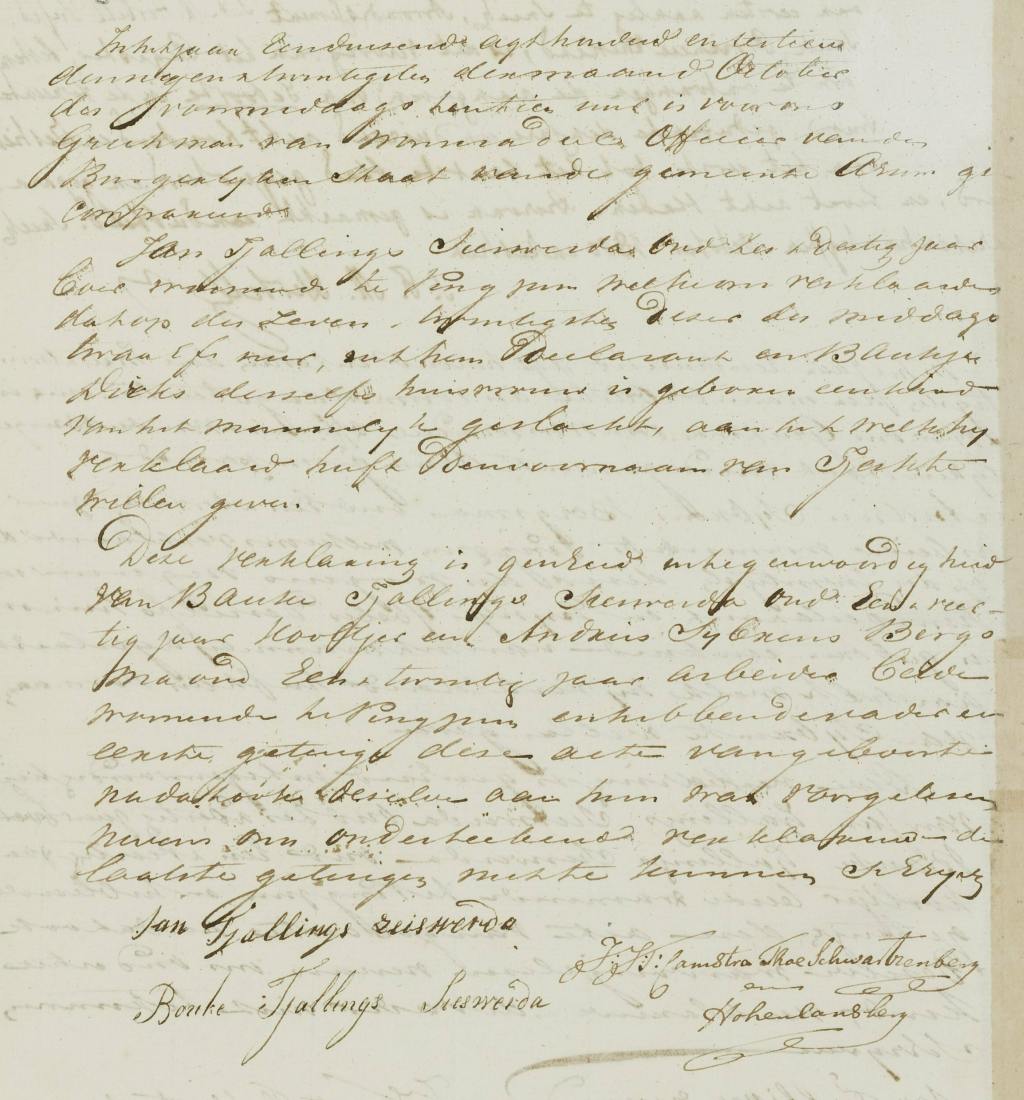 In het jaar Eenduisend agt honderd en sestien
den negen & twintigsten der maand October
des voormiddags ten tien uur is voor ons
Grietman van Wonseradeel Officier van den
Burgerlyken Staat van de gemeente Arum ge
compareerd
Jan Tjallings Sieswerda oud zes & Dertig jaar
boer woonende te Pingjum welke ons verklaarde
dat op den zeven & twintigsten Deser des middags
twaalf uur, uit hem Declarant en Baukje
Dirks desselfs huisvrouw is geboren een kind
van het mannelyk geslacht, aan het welk hy
verklaard heeft Den voornaam van
willen geven.
Deze verklaring is geschied in tegenwoordigheid
van Bauke Tjallings Sieswerda oud Een & veer-
tig jaar en Andries Sybrens Bergs
ma oud Een & twintig jaar arbeider beide
woonende te Pingjum en hebben de vader en
eerste getuige dese acte van geboorte
na dat ook deselve aan hun was voorgelesen
nevens ons onderteekend verklarende de
laatste getuigen niet te kunnen Schryven
Jan Tjallings zeiswerda
Bouke Tjallings Sieswerda
J: S: Camstra Thoe Schwartzenberg
en
Hohenlansberg